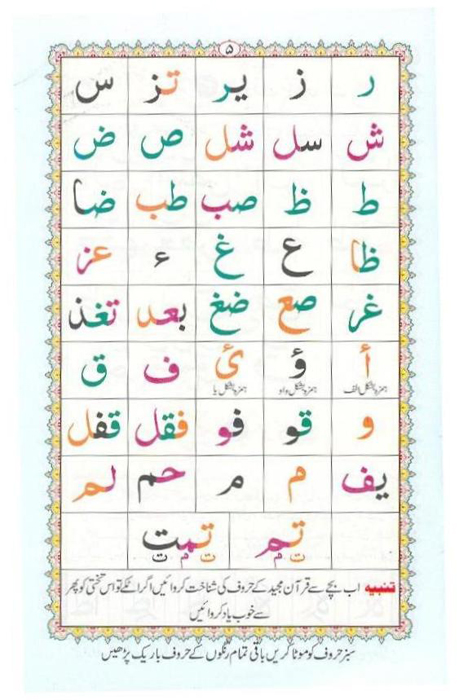 ۵
ر ز یر تز س
ش سل شل ص ض
ط ظ صب طب ضا
ظا ع غ ء عز
غر صع ضغ بعد تغذ
أ ؤ ئ ف ق
ہمزہ بشکل الف ہمزہ بشکل واو ہمزہ بشکل یا
و قو فو فقل قفل
یف م م حم لم
تم تمت
ت م ت م ت
تنبیہ اب بچے سے قرآن مجید کے حروف کی شناخت کروائیں اگر اٹکے تو اس تختی کو پھر
سے خوب یاد کروائیں
سبز حروف کو موٹا کریں باقی تمام رنگوں کے حروف باریک پڑھیں